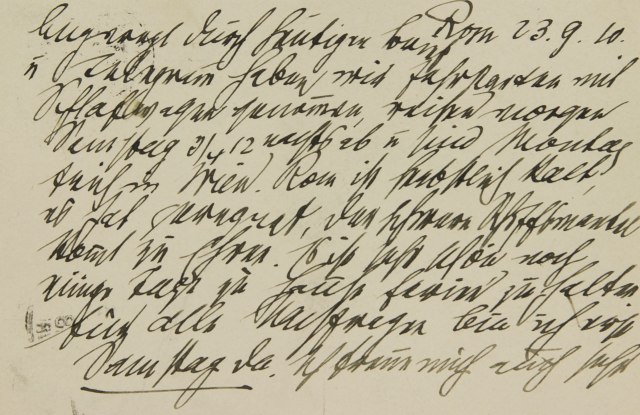 Angeregt durch heutigen Rom 23.9.10.
u Telegram haben wir Fahrkarten mit
Schlafwagen genommen, reisen morgen
Samstag 3/4 12 nachts ab u sind Montag
früh in Wien. Rom ist herbstlich kalt,
es hat geregnet, der schwere Schiffsmantel
kommt zu Ehren. ist sehr schön noch
einige Tage zu Hause Ferien zu halten
für alle Nachfragen bin ich erst
Samstag da. Ich freue mich auch sehr